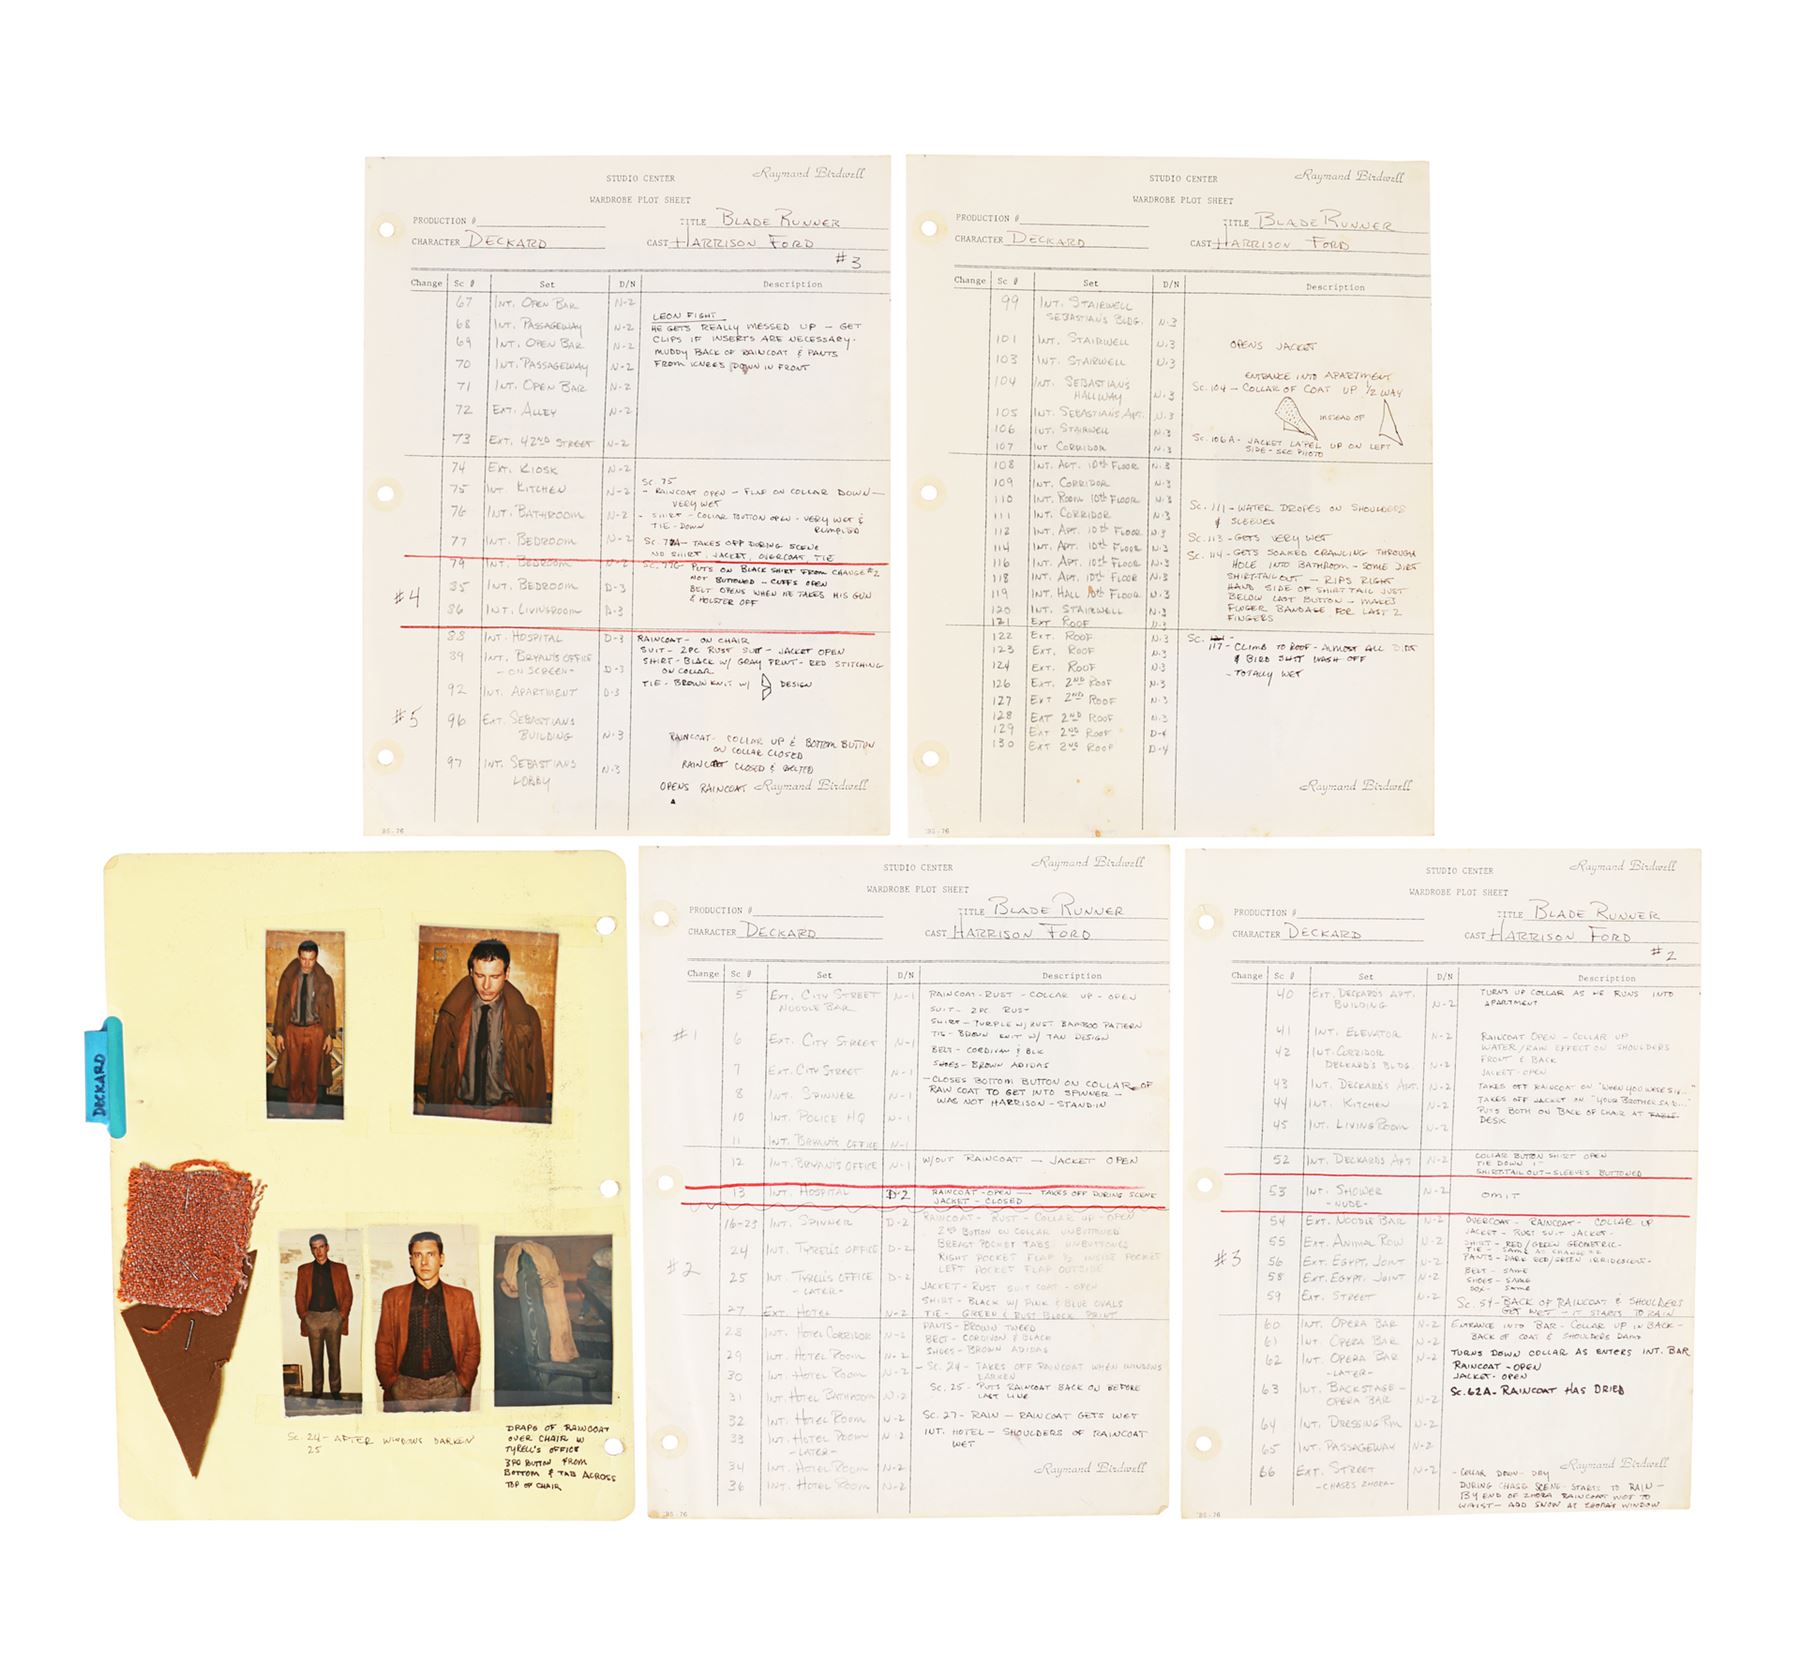 STUDIO CENTER
Raymand Birdwell
WARDROBE PLOT SHEET
PRODUCTION # TITLE BLADE RUNNER
CHARACTER DECKARD CAST HARRISON FORD
#3
Change Sc # Set D/N Description
67 INT. OPEN BAR N-2
LEON FIGHT
68 INT. PASSAGEWAY N-2 HE GETS REALLY MESSED UP – GET
69 INT. OPEN BAR N-2 CLIPS IF INSERTS ARE NECESSARY.
MUDDY BACK OF RAINCOAT & PANTS
70 INT. PASSAGEWAY N-2 FROM KNEES DOWN IN FRONT
71 INT. OPEN BAR N-2
72 EXT. ALLEY N-2
73 EXT. 42ND STREET N-2
74 EXT. KIOSK N-2
SC. 75
75 INT. KITCHEN N-2 - RAINCOAT OPEN – FLAP ON COLLAR DOWN –
VERY WET
76 INT. BATHROOM N-2 - SHIRT - COLLAR BUTTON OPEN - VERY WET & RUMPLED
TIE - DOWN
77 INT. BEDROOM N-2 SC. 77A – TAKES OFF DURING SCENE
NO SHIRT, JACKET, OVERCOAT, TIE
79 INT. BEDROOM N-2 PUTS ON BLACK SHIRT FROM CHANGE #2
NOT BUTTONED – CUFFS OPEN
#4 85 INT. BEDROOM D-3 BELT OPENS WHEN HE TAKES HIS GUN
& HOLSTER OFF
86 INT. LIVINGROOM D-3
88 INT. HOSPITAL D-3 RAINCOAT – ON CHAIR
SUIT - 2PC RUST SUIT – JACKET OPEN
89 INT. BRYANT'S OFFICE SHIRT - BLACK W/ GRAY PRINT - RED STITCHING
-ON SCREEN- D-3 ON COLLAR
92 INT. APARTMENT D-3 TIE - BROWN KNIT W/ DESIGN
#5 96 EXT. SEBASTIANS
BUILDING N-3 RAINCOAT - COLLAR UP & BOTTOM BUTTON
ON COLLAR CLOSED
97 INT. SEBASTIANS N-3 RAINCOAT CLOSED & BELTED
LOBBY
OPENS RAINCOAT Raymand Birdwell
BS-76
STUDIO CENTER
Raymand Birdwell
WARDROBE PLOT SHEET
PRODUCTION # TITLE BLADE RUNNER
CHARACTER DECKARD CAST HARRISON FORD
Change Sc # Set D/N Description
99 INT. STAIRWELL
SEBASTIAN'S BLDG. N-3
101 INT. STAIRWELL N-3 OPENS JACKET
103 INT. STAIRWELL N-3
ENTRANCE INTO APARTMENT
104 INT. SEBASTIANS SC. 104 – COLLAR OF COAT UP 1/2 WAY
HALLWAY N-3
105 INT. SEBASTIANS APT. N-3 INSTEAD OF
106 INT. STAIRWELL N-3
107 INT CORRIDOR N-3 SC. 106A - JACKET LAPEL UP ON LEFT
SIDE - SEE PHOTO
108 INT. APT. 10th FLOOR N-3
109 INT. CORRIDOR N-3
110 INT. ROOM 10th FLOOR N-3
111 INT. CORRIDOR N-3 SC. 111 - WATER DROPES ON SHOULDERS
& SLEEVES
112 INT. APT. 10th FLOOR N-3
SC. 113 - GETS VERY WET
114 INT. APT. 10th FLOOR N-3 SC. 114 - GETS SOAKED CRAWLING THROUGH
116 INT. APT. 10th FLOOR N-3 HOLE INTO BATHROOM – SOME DIRT
118 INT. APT. 10th FLOOR N-3 SHIRT-TAIL OUT – RIPS RIGHT
HAND SIDE OF SHIRT TAIL JUST
119 INT. HALL 10th FLOOR N-3 BELOW LAST BUTTON – MAKES
120 INT. STAIRWELL N-3 FINGER BANDAGE FOR LAST 2
121 EXT ROOF N-3 FINGERS
122 EXT. ROOF N-3 SC.
123 EXT. ROOF N-3 117 - CLIMB TO ROOF - ALMOST ALL DIRT
& BIRD SHIT WASH OFF
124 EXT. ROOF N-3 - TOTALLY WET
126 EXT. 2ND ROOF N-3
127 EXT 2ND ROOF N-3
128 EXT 2ND ROOF N-3
129 EXT 2ND ROOF D-4
130 EXT 2ND ROOF D-4
Raymand Birdwell
BS-76
DECKARD
SC. 24 - AFTER WINDOWS DARKEN
25
DRAPE OF RAINCOAT
OVER CHAIR IN
TYRELL'S OFFICE
3RD BUTTON FROM
BOTTOM & TAB ACROSS
TOP OF CHAIR
STUDIO CENTER
Raymand Birdwell
WARDROBE PLOT SHEET
PRODUCTION # TITLE BLADE RUNNER
CHARACTER DECKARD CAST HARRISON FORD
Change Sc # Set D/N Description
5 EXT. CITY STREET N-1 RAINCOAT - RUST - COLLAR UP - OPEN
NOODLE BAR SUIT - 2PC. RUST
SHIRT - PURPLE W/ RUST BAMBOO PATTERN
#1 6 EXT. CITY STREET N-1 TIE - BROWN KNIT W/ TAN DESIGN
BELT - CORDIVAN & BLK
7 EXT. CITY STREET N-1 SHOES - BROWN ADIDAS
– CLOSES BOTTOM BUTTON ON COLLAR OF
8 INT. SPINNER N-1 RAIN COAT TO GET INTO SPINNER –
WAS NOT HARRISON - STAND-IN
10 INT. POLICE HQ N-1
11 INT. BRYANT'S OFFICE N-1
12 INT. BRYANT'S OFFICE N-1 W/OUT RAINCOAT – JACKET OPEN
13 INT. HOSPITAL D-2 RAINCOAT - OPEN – TAKES OFF DURING SCENE
JACKET - CLOSED
16-23 INT. SPINNER D-2 RAINCOAT - RUST - COLLAR UP - OPEN
2ND BUTTON ON COLLAR UNBUTTONED
24 INT. TYRELL'S OFFICE D-2 BREAST POCKET TABS UNBUTTONED
RIGHT POCKET FLAP 1/2 INSIDE POCKET
#2 25 INT. TYRELL'S OFFICE D-2 LEFT POCKET FLAP OUTSIDE
-LATER- JACKET - RUST SUIT COAT - OPEN
SHIRT - BLACK W/ PINK & BLUE OVALS
27 EXT. HOTEL N-2 TIE - GREEN & RUST BLOCK PRINT
28 INT. HOTEL CORRIDOR N-2 PANTS - BROWN TWEED
BELT - CORDIVAN & BLACK
29 INT. HOTEL ROOM N-2 SHOES - BROWN ADIDAS
30 INT. HOTEL ROOM N-2 – SC. 24 - TAKES OFF RAINCOAT WHEN WINDOWS
DARKEN
31 INT. HOTEL BATHROOM N-2 SC. 25 - PUTS RAINCOAT BACK ON BEFORE
LAST LINE
32 INT. HOTEL ROOM N-2 SC. 27 - RAIN – RAINCOAT GETS WET
33 INT. HOTEL ROOM N-2 INT. HOTEL – SHOULDERS OF RAINCOAT
-LATER- WET
34 INT. HOTEL ROOM N-2 Raymand Birdwell
36 INT. HOTEL ROOM N-2
BS-76
STUDIO CENTER
Raymand Birdwell
WARDROBE PLOT SHEET
PRODUCTION # TITLE BLADE RUNNER
CHARACTER DECKARD CAST HARRISON FORD
#2
Change Sc # Set D/N Description
40 EXT. DECKARD'S APT. TURNS UP COLLAR AS HE RUNS INTO
BUILDING N-2 APARTMENT
41 INT. ELEVATOR N-2 RAINCOAT OPEN - COLLAR UP
42 INT. CORRIDOR WATER/RAIN EFFECT ON SHOULDERS
FRONT & BACK
DECKARD'S BLDG. N-2 JACKET - OPEN
43 INT. DECKARD'S APT. N-2 TAKES OFF RAINCOAT ON "WHEN YOU WERE SIX..."
44 INT. KITCHEN N-2 TAKES OFF JACKET ON "YOUR BROTHER
PUTS BOTH ON BACK OF CHAIR AT TABLE
45 INT. LIVINGROOM N-2 DESK
52 INT. DECKARD'S APT N-2 COLLAR BUTTON SHIRT OPEN
TIE DOWN 1"
SHIRT-TAIL OUT - SLEEVES BUTTONED
53 INT. SHOWER N-2 OMIT
-NUDE-
54 EXT. NOODLE BAR N-2 OVERCOAT - RAINCOAT - COLLAR UP
JACKET - RUST SUIT JACKET -
55 EXT. ANIMAL ROW N-2 SHIRT - RED/GREEN GEOMETRIC -
TIE - SAME AS CHANGE #2
#3 56 EXT. EGYPT. JOINT N-2 PANTS - DARK RED/GREEN IRRIDESCENT -
BELT - SAME
58 EXT. EGYPT. JOINT N-2 SHOES - SAME
SOX - SAME
59 EXT. STREET N-2 SC. 54 - BACK OF RAINCOAT & SHOULDERS
GET WET – IT STARTS TO RAIN
60 INT. OPERA BAR N-2 ENTRANCE INTO BAR - COLLAR UP IN BACK -
61 INT. OPERA BAR N-2 BACK OF COAT & SHOULDERS DAMP
62 INT. OPERA BAR N-2 TURNS DOWN COLLAR AS ENTERS INT. BAR
-LATER- RAINCOAT - OPEN
JACKET - OPEN
63 INT. BACKSTAGE - N-2 SC. 62A - RAINCOAT HAS DRIED
OPERA BAR
64 INT. DRESSING RM N-2
65 INT. PASSAGEWAY N-2
Raymand Birdwell
66 EXT. STREET N-2 - COLLAR DOWN - DRY
-CHASES ZHORA- DURING CHASE SCENE - STARTS TO RAIN –
BY END OF ZHORA RAINCOAT WET TO
WAIST – ADD SNOW AT ZHORA'S WINDOW
BS-76